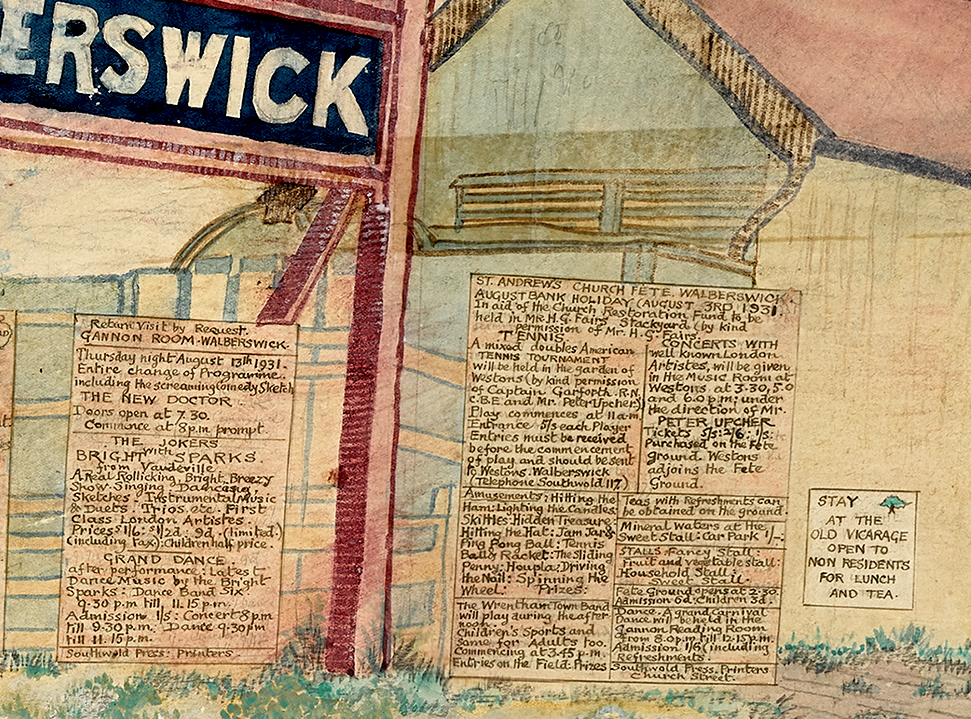 ERSWICK
Return Visit by Request.
GANNON ROOM-WALBERSWICK.
Thursday night August 13th 1931.
Entire change of Programme.
including the screaming Comedy Sketch
THE NEW DOCTOR
Doors open at 7.30.
Commence at 8 p.m prompt.
THE JOKERS
with
BRIGHT SPARKS.
from Vaudeville
A Real Rollicking, Bright, Breezy
Show. Singing. Dancing
Sketches. Instrumental Music
& Duets. Trios. etc. First
Class London Artistes.
Prices (limited)
(including Tax). Children half price.
GRAND DANCE
after performance. Latest
Dance Music by the Bright
Sparks: Dance Band Six.
9.30 p.m till 11.15 p.m.
Admission 1/s: Concert 8 p.m
till 9.30 p.m. Dance 9.30 p.m
till 11.15 p.m.
Southwold Press: Printers
ST. ANDREWS CHURCH FETE. WALBERSWICK.
AUGUST BANK HOLIDAY (AUGUST 3RD 1931.
In aid of the Church Restoration Fund to be
held in Mr. H.G. Fairs Stackyard (by kind
permission of Mr. H.G. Fairs.
TENNIS.
A mixed doubles American
TENNIS TOURNAMENT
will be held in the garden of
Westons (by kind permission
of Captain Garforth. R.N.
C.B.E and Mr. Peter Upcher)
Play commences at 11 a.m.
Entrance 5/s each Player
Entries must be received
before the commencement
of play and should be sent
to Westons. Walberswick
(Telephone Southwold 117)
CONCERTS WITH
well known London
Artistes, will be given
in the Music Room at
Westons. at 3.30, 5.0
and 6.0 p.m; under
the direction of Mr.
PETER UPCHER
Tickets 5/s: 2/6: 1/s:
Purchased on the Fete
ground. Westons
adjoins the Fete
Ground.
Amusements: Hitting the
Ham: Lighting the Candles:
Skittles: Hidden Treasure:
Hitting the Hat: Jam Jars
Ping Pong Ball: Tennis
Ball & Racket: The Sliding
Penny: Houpla: Driving
the Nail: Spinning the
Wheel: Prizes:
The Wrentham Town Band
will play during the after
noon.
Children's Sports and
Some for Adults Too.
Commencing at 3.45 p.m.
Entries on the Field: Prizes
Teas with Refreshments can
be obtained on the ground.
Mineral Waters at the
Sweet Stall: Car Park 1/-.
STALLS. Fancy Stall:
Fruit and vegetable stall:
Household Stall:
Sweet Stall.
Fete Ground opens at 2.30.
Admission 6d. Children 3d.
Dance. A grand Carnival
Dance will be held in the
Gannon Reading Room
from 8.0 p.m till 12.15 p.m.
Admission 1/6 (including
Refreshments.
Southwold Press: Printers
Church Street.
STAY
AT THE
OLD VICARAGE
OPEN TO
NON RESIDENTS
FOR LUNCH
AND TEA.